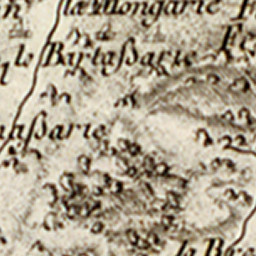 la Mongarie
le Bartaßarie
aßarie
la Br